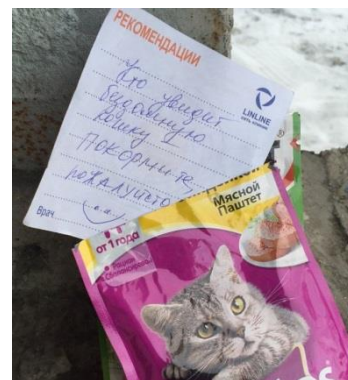 РЕКОМЕНДАЦИИ
LINLINE
Кто увидит
бездомную
кошку
Покормите,
пожалуйста
Врач
от 1 года
Мясной
Паштет